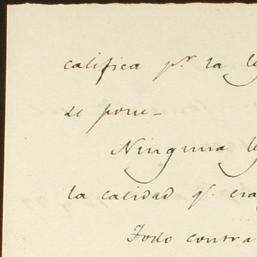 califica pr. la
se pone_
Ninguna
la calidad q.
Todo contra